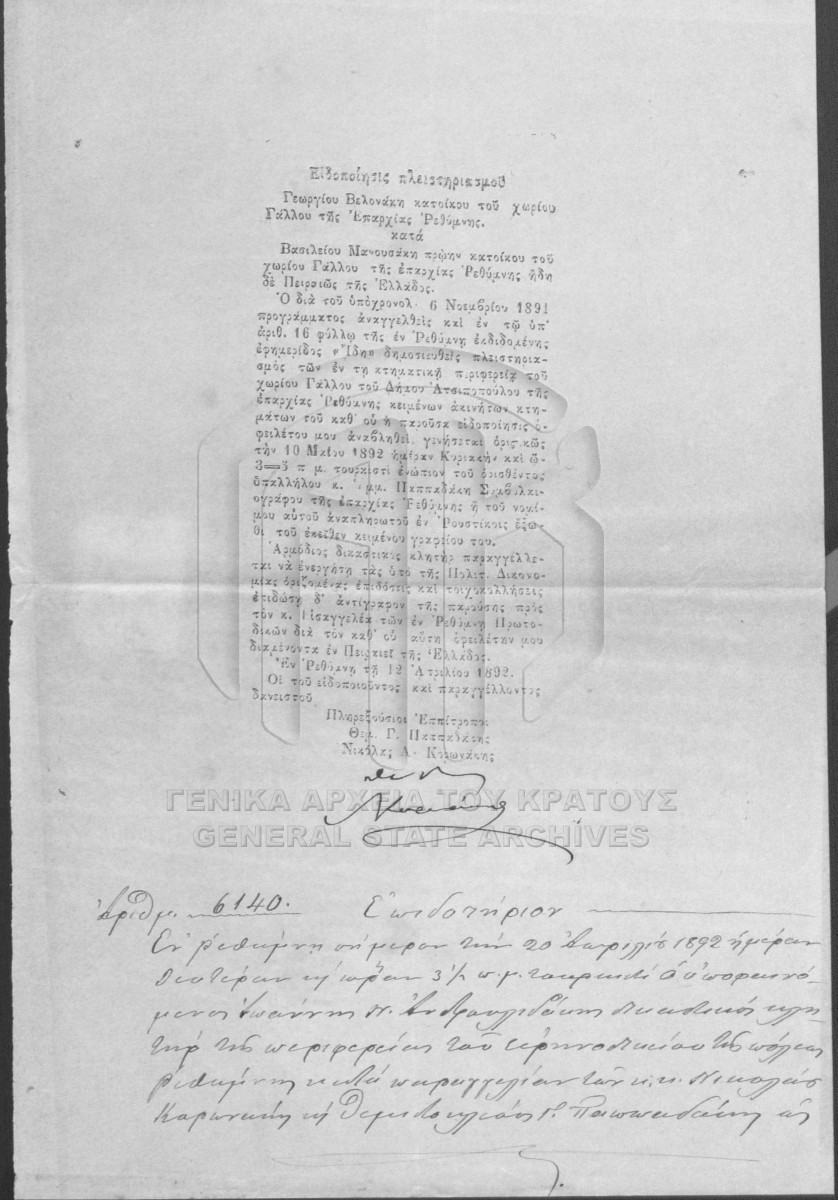 Εἰδοποίησις πλειστηριασμοῦ
Γεωργίου Βελονάκη κατοίκου τοῦ χωρίου
Γάλλου τῆς Ἐπαρχίας Ῥεθύμνης.
κατά
Βασιλείου Μανουσάκη πρῴην κατοίκου τοῦ
χωρίου Γάλλου τῆς ἐπαρχίας Ῥεθύμνης ἤδη
δὲ Πειραιῶς τῆς Ἑλλάδος.
Ὁ διὰ τοῦ ὑπὸ χρονολ. 6 Νοεμβρίου 1891
προγράμματος ἀναγγελθεὶς καὶ ἐν τῷ ὑπ'
ἀριθ. 16 φύλλῳ τῆς ἐν Ῥεθύμνῃ ἐκδιδομένης
ἐφημερίδος «Ἴδη» δημοσιευθεὶς πλειστηρια-
σμὸς τῶν ἐν τῃ κτηματικῇ περιφερείᾳ τοῦ
χωρίου Γάλλου τοῦ Δήμου Ἀτσιποπούλου τῆς
ἐπαρχίας Ῥεθύμνης κειμένων ἀκινήτων κτη-
μάτων τοῦ καθ' οὗ ἡ παροῦσα εἰδοποίησις ὀ-
φειλέτου μου ἀναβληθεὶς γενήσεται ὁριστικῶς
τὴν 10 Μαΐου 1892 ἡμέραν Κυριακὴν καὶ ὥ-
3=5 π μ. τουρκιστὶ ἐνώπιον τοῦ ὁρισθέντος
ὑπαλλήλου κ. Ἐμμ. Παππαδάκη Συμβολαι-
ογράφου τῆς ἐπαρχίας Ῥεθύμνης ἢ τοῦ νομί-
μου αὐτοῦ ἀναπληρωτοῦ ἐν Ῥουστίκοις ἔξω-
θι τοῦ ἐκεῖθεν κειμένου γραφείου του.
Ἁρμόδιος δικαστικὸς κλητὴρ παραγγέλλε-
ται νὰ ἐνεργήσῃ τὰς ὑπὸ τῆς Πολιτ. Δικονο-
μίας ὁριζομένας ἐπιδόσεις καὶ τοιχοκολλήσεις
ἐπιδώσῃ δ' ἀντίγραφον τῆς παρούσης πρὸς
τὸν κ. Εἰσαγγελέα τῶν ἐν Ῥεθύμνῃ Πρωτο-
δικῶν διὰ τὸν καθ' οὗ αὕτη ὀφειλέτην μου
διαμένοντα ἐν Πειραιεῖ τῆς Ἑλλάδος.
Ἐν Ῥεθύμνῃ τῇ 12 Ἀπριλίου 1892.
Οἱ τοῦ εἰδοποιοῦντος καὶ παραγγέλλοντος
δανειστοῦ
Πληρεξούσιοι Ἐπίτροποι
Θεμ. Γ. Παππαδάκης
Νικόλας Α. Κορωνάκης
ΓΕΝΙΚΑ ΑΡΧΕΙΑ ΤΟΥ ΚΡΑΤΟΥΣ
GENERAL STATE ARCHIVES
Ἀριθμ. 6140. Ἐπιδοτήριον
Ἐν Ῥεθύμνῃ σήμερον τὴν 20 Ἀπριλίου 1892 ἡμέραν
Δευτέραν κ ὥραν 3½ π.μ. τουρκιστὶ ὁ ὑποφαινό-
μενος Ἰωάννης Ν. δικαστικὸς κλη-
τὴρ τῆς περιφερείας τοῦ εἰρηνοδικείου τῆς πόλεως
Ῥεθύμνης κατὰ παραγγελίαν τῶν κ.κ. Νικολάου
Κορωνάκη κ Θεμιστοκλέους Γ. Παππαδάκη ὡς